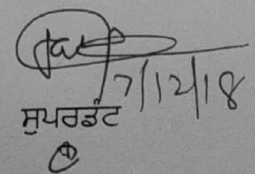 7/12/18
ਸੁਪਰਡੰਟ